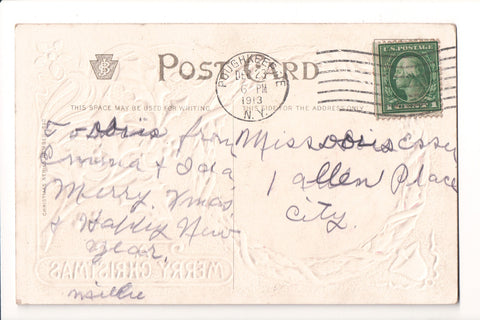 POST CARD
THIS SPACE MAY BE USED FOR WRITING.
THIS SIDE FOR THE ADDRESS ONLY.
POUGHKEEPSIE
DEC 23
6 - PM
1913
N.Y.
U.S. POSTAGE
To Doris from
Emma & Ida
Merry Xmas
& Happy New
Year.
Millie
Miss Doris
1 Allen Place
City.
MERRY CHRISTMAS